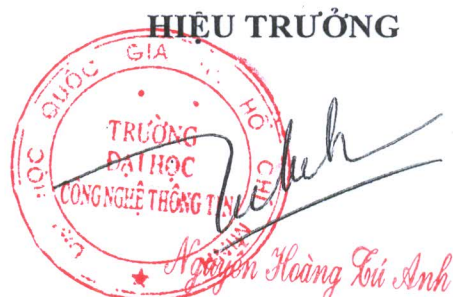 HIỆU TRƯỞNG
ĐẠI HỌC QUỐC GIA TP. HỒ CHÍ MINH
TRƯỜNG
ĐẠI HỌC
CÔNG NGHỆ THÔNG TIN
Nguyễn Hoàng Tú Anh